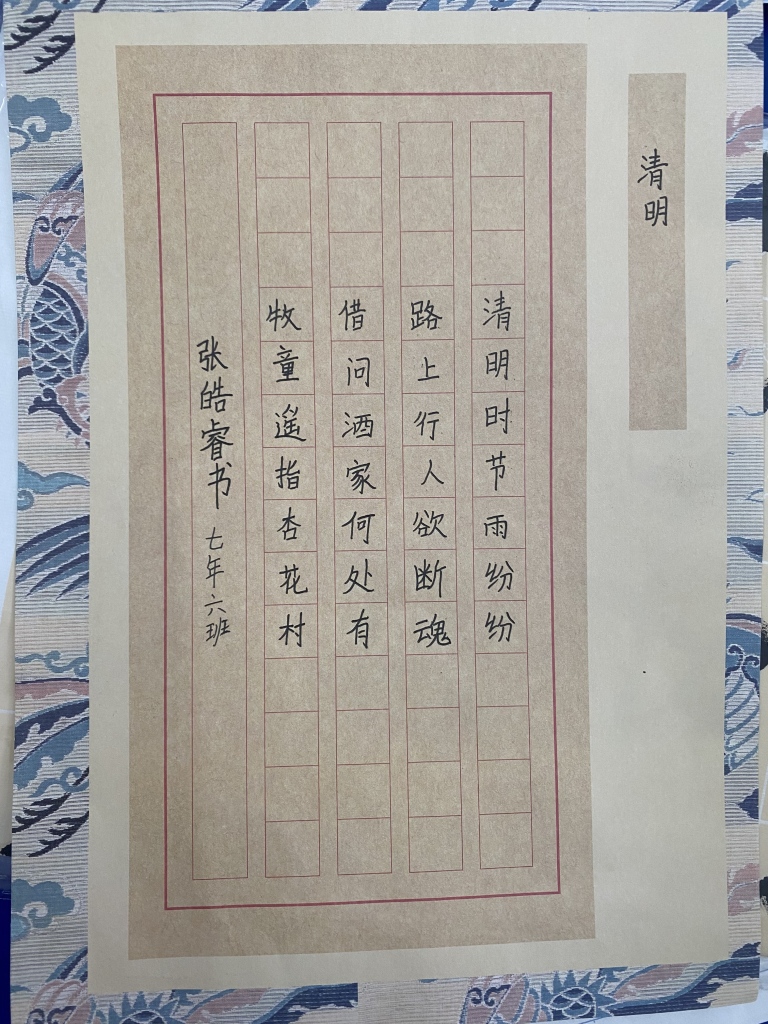 清明
清明时节雨纷纷
路上行人欲断魂
借问酒家何处有
牧童遥指杏花村
张皓睿书 七年六班